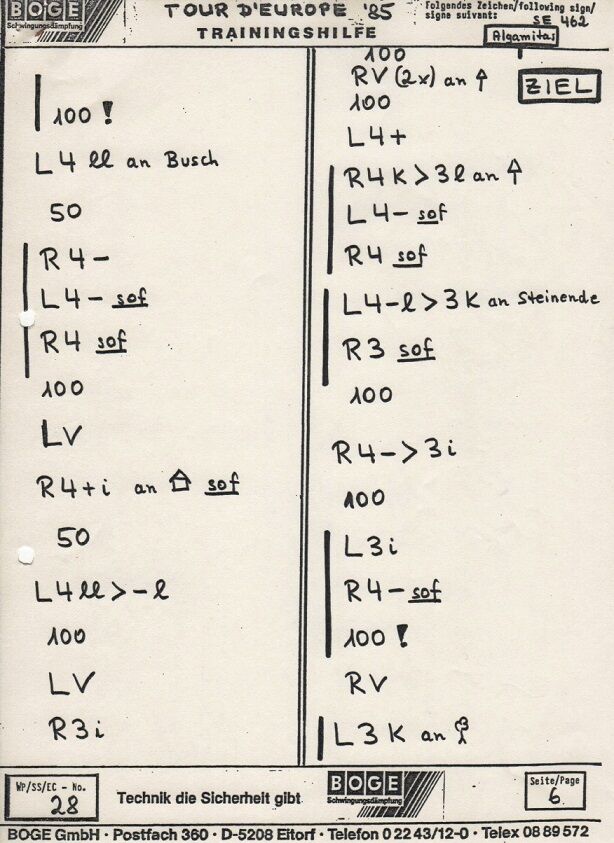 BOGE
Schwingungsdämpfung
TOUR D'EUROPE '85
TRAININGSHILFE
Folgendes Zeichen/following sign/
signe suivant:
SE 462
Algamitas
100 !
L4 ll an Busch
50
R4-
L4- sof
R4 sof
100
LV
R4+i an ⌂ sof
50
L4ll>-l
100
LV
R3i
100
RV (2x) an
ZIEL
100
L4+
R4K>3l an
L4- sof
R4 sof
L4-l>3K an Steinende
R3 sof
100
R4->3i
100
L3i
R4-sof
100 !
RV
L3K an
WP/SS/EC - No.
28
Technik die Sicherheit gibt
BOGE
Schwingungsdämpfung
Seite/Page
6
BOGE GmbH · Postfach 360 · D-5208 Eitorf · Telefon 0 22 43/12-0 · Telex 08 89 572